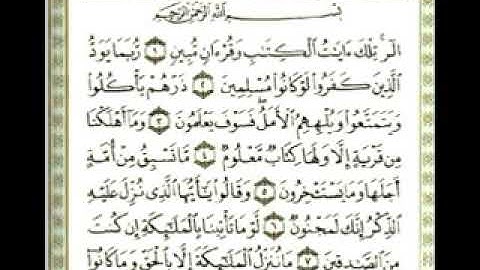 بِسْمِ ٱللَّهِ ٱلرَّحْمَٰنِ ٱلرَّحِيمِ
الٓر ۚ تِلْكَ ءَايَٰتُ ٱلْكِتَٰبِ وَقُرْءَانٍ مُّبِينٍ ١ رُّبَمَا يَوَدُّ
ٱلَّذِينَ كَفَرُوا۟ لَوْ كَانُوا۟ مُسْلِمِينَ ٢ ذَرْهُمْ يَأْكُلُوا۟
وَيَتَمَتَّعُوا۟ وَيُلْهِهِمُ ٱلْأَمَلُ ۖ فَسَوْفَ يَعْلَمُونَ ٣ وَمَآ أَهْلَكْنَا
مِن قَرْيَةٍ إِلَّا وَلَهَا كِتَابٌ مَّعْلُومٌ ٤ مَّا تَسْبِقُ مِنْ أُمَّةٍ
أَجَلَهَا وَمَا يَسْتَـْٔخِرُونَ ٥ وَقَالُوا۟ يَٰٓأَيُّهَا ٱلَّذِى نُزِّلَ عَلَيْهِ
ٱلذِّكْرُ إِنَّكَ لَمَجْنُونٌ ٦ لَّوْ مَا تَأْتِينَا بِٱلْمَلَٰٓئِكَةِ إِن كُنتَ
مِنَ ٱلصَّٰدِقِينَ ٧ مَا نُنَزِّلُ ٱلْمَلَٰٓئِكَةَ إِلَّا بِٱلْحَقِّ وَمَا كَانُوٓا۟